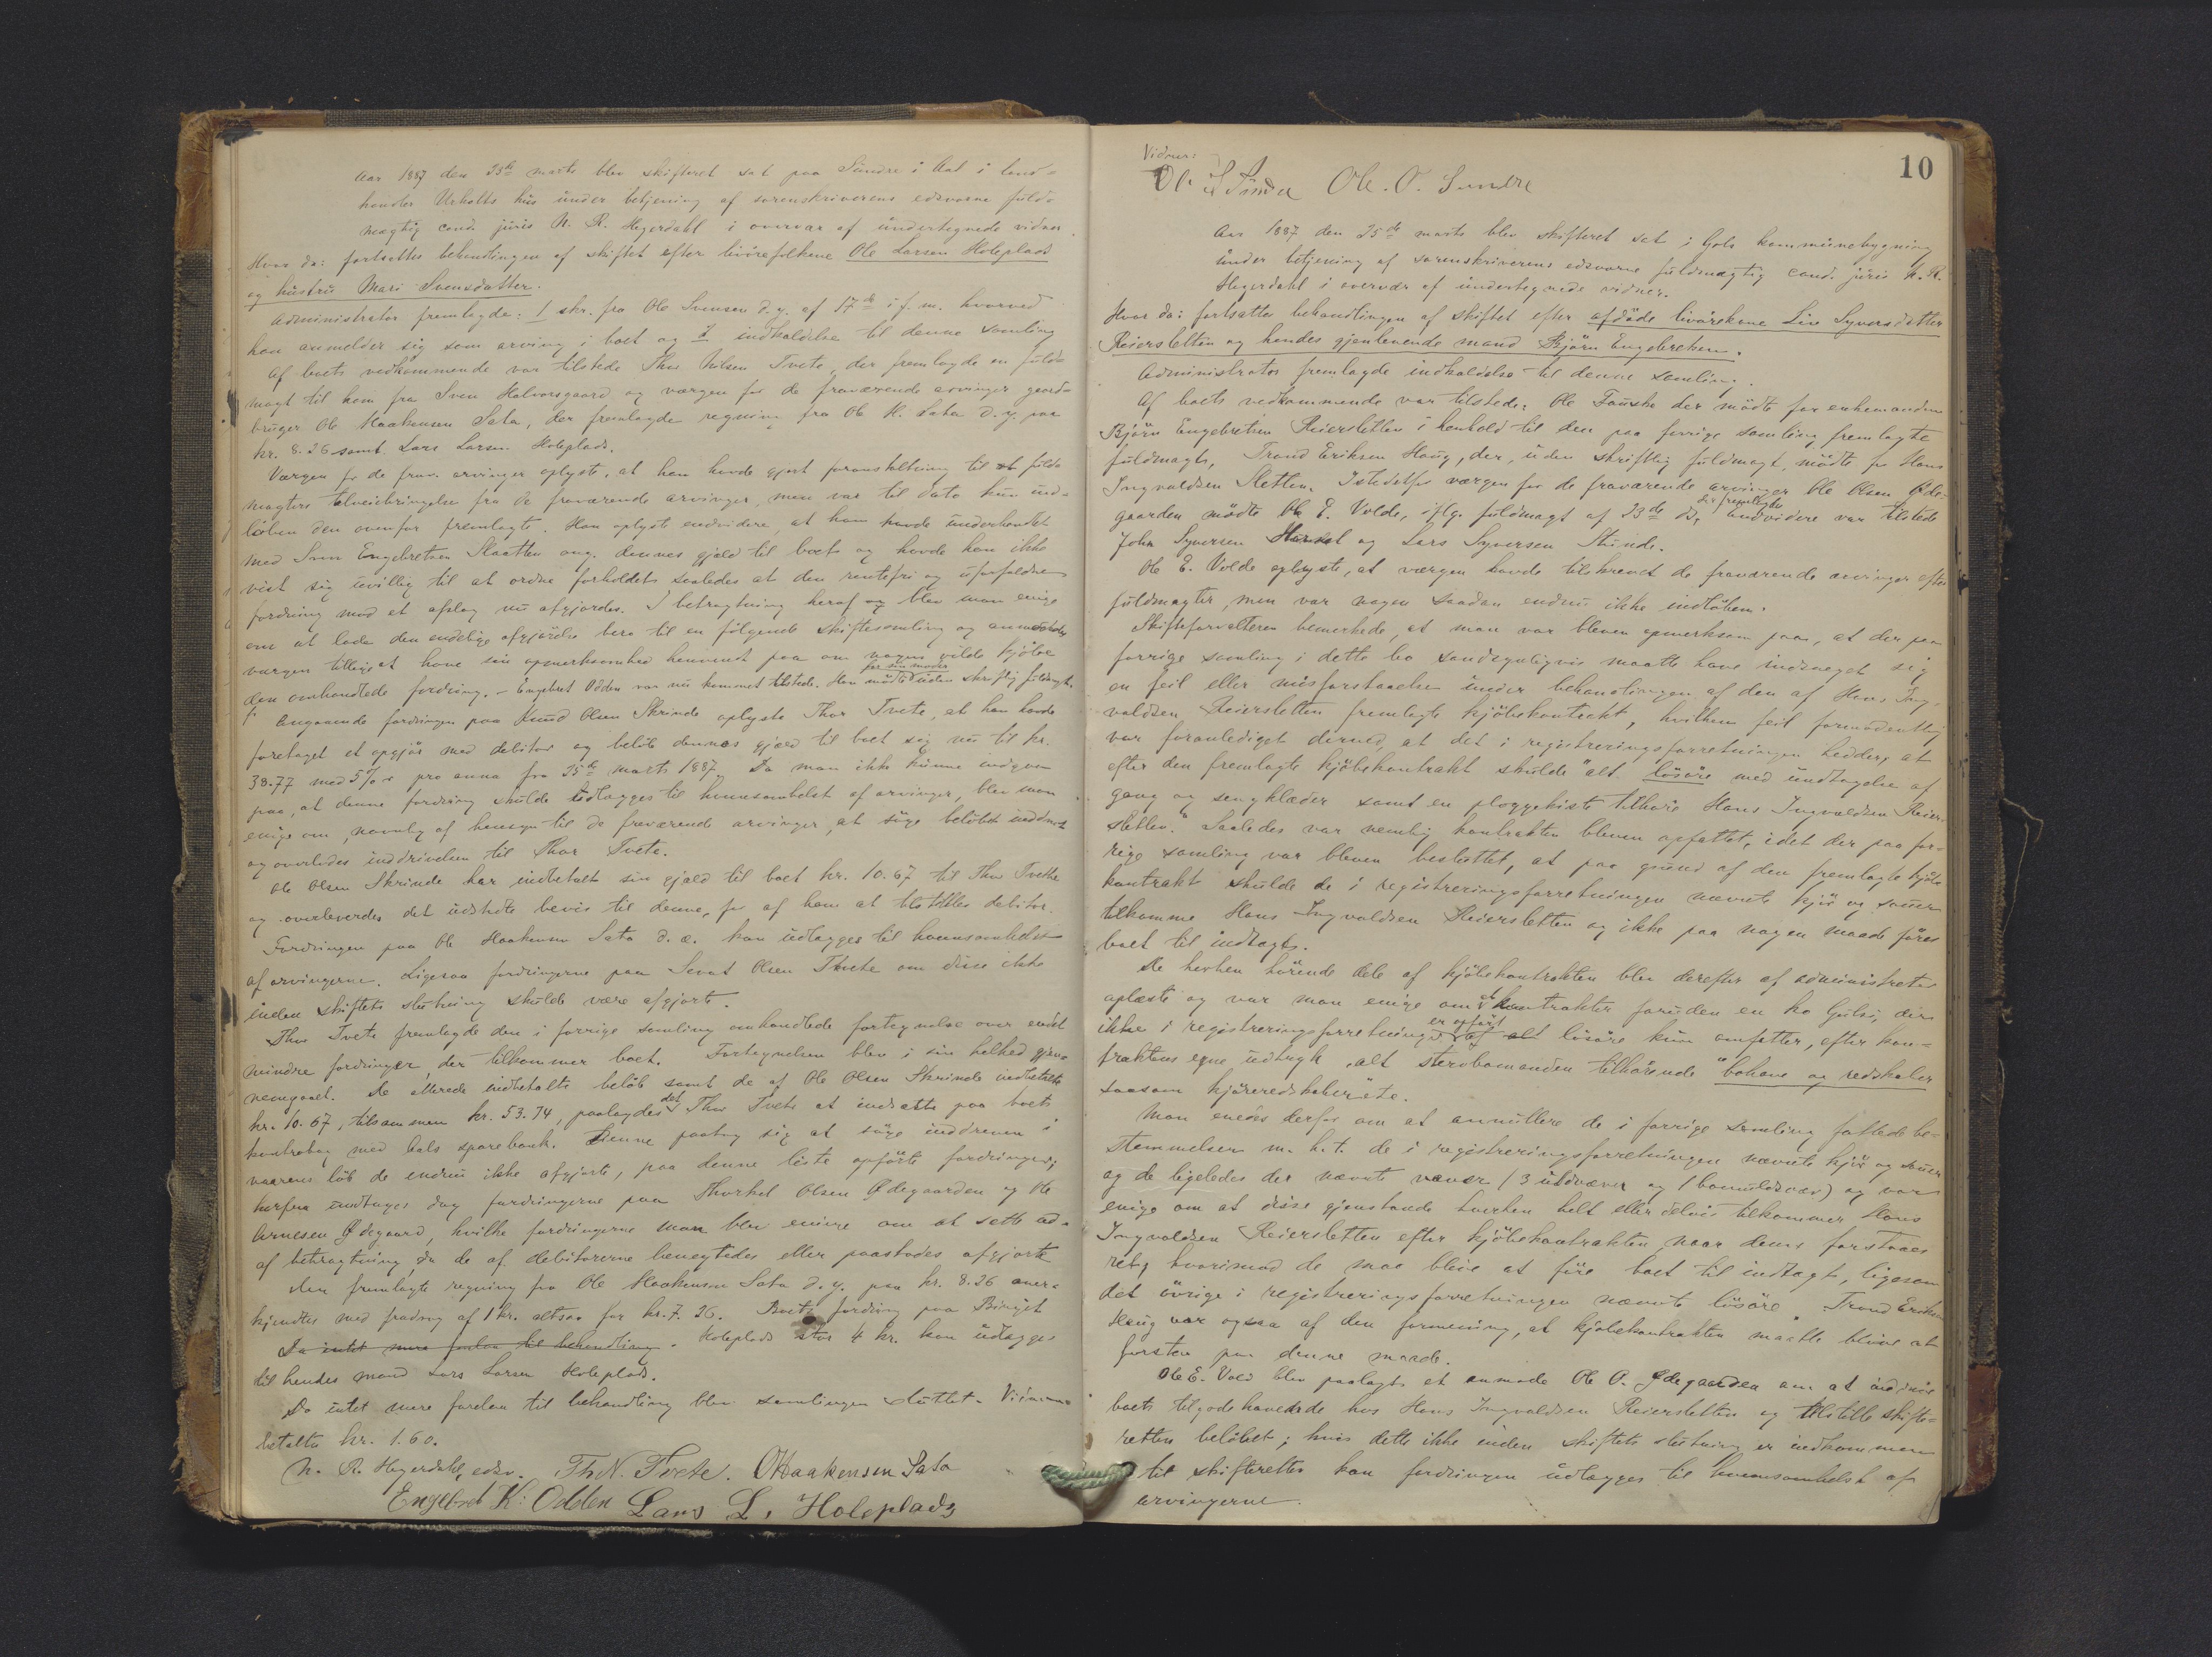 Aar 1887 den 23de marts blev skifteret sat paa Sundre i Aal i land-
handler Urholts hus under betjening af sorenskriverens edsvorne fuld-
mægtig cand. juris N. R. Hegerdahl i overvær af undertegnede vidner.
Hvor da: fortsattes behandlingen af skiftet efter livörefolkene Ole Larsen Holeplads
og hustru Mari Svensdatter.
Administrator fremlagde: 1 skr. fra Ole Svensen d.y. af 17de i f. m. hvorved
han anmelder sig som arving i boet og 2 indkaldelse til denne samling
Af boets vedkommende var tilstede Thor Nilsen Tvete, der fremlagde en fuld-
magt til ham fra Sven Halvorsgaard og værgen for de fraværende arvinger gaard-
bruger Ole Haakensen Sata, der fremlagde regning fra Ole H. Sata d.y. paa
kr. 8.26 samt Lars Larsen Holeplads.
Værgen for de frav. arvinger oplyste, at han havde gjort foranstaltning til at fuld-
magters tilveiebringelse fra de fraværende arvinger, men var til dato kun ind-
löben den ovenfor fremlagte. Han oplyste endvidere, at han havde underhandlet
med Sven Engebretsen Slaatten ang. dennes gjæld til boet og havde han ikke
vist sig uvillig til at ordne forholdet saaledes at den rentefri og uforfaldne
fordring med et afslag nu afgjordes. I betragtning heraf og blev man enige
om at lade den endelige afgjörelse bero til en fölgende skiftesamling og anmodedes
værgen tillige at have sin opmerksomhed henvendt paa om nogen vilde kjöbe
den omhandlede fordring. - Engebret Odden var nu kommet tilstede. Han mödte for sin moder uden skriftlig fuldmagt.
Angaaende fordringen paa Knud Olsen Skrinde oplyste Thor Tvete, at han havde
foretaget et opgjör med debitor og belöb dennes gjæld til boet sig nu til kr.
38.77 med 5% r. pro anno fra 25de marts 1887. Da man ikke kunne indgaa
paa, at denne fordring skulde udlægges til hvemsomhelst af arvinger, blev man
enige om, navnlig af hensyn til de fraværende arvinger, at söge belöbet inddrevet
og overlodes inddrivelsen til Thor Tvete.
Ole Olsen Skrinde har indbetalt sin gjæld til boet kr. 10.67 til Thor Tvete
og overleverdes det udstedte bevis til denne, for af ham at tilstilles debitor.
Fordringen paa Ole Haakensen Sata d. æ. kan udlægges til hvemsomhelst
af arvingerne. Ligesaa fordringerne paa Sevat Olsen Tvete om disse ikke
inden skiftets slutning skulde være afgjort.
Thor Tvete fremlagde den i forrige samling omhandlede fortegnelse over endel
mindre fordringer, der tilkommer boet. Fortegnelsen blev i sin helhed gjen-
nemgaaet. De allerede indbetalte belöb samt de af Ole Olsen Skrinde indbetalte
kr. 10.67, tilsammen kr. 53.74, paalagdes det Thor Tvete at indsætte paa boets
kontrabog med Aals sparebank. Denne paatog sig at söge inddreven i
vaarens löb de endnu ikke afgjorte, paa denne liste opförte fordringer;
herfra undtages dog fordringerne paa Thorkel Olsen Ödegaarden og Ole
Arnesen Ödegaard, hvilke fordringerne man blev enige om at sette ud-
af betragtning, da de af debitorerne benegtedes eller paastodes afgjort
Den fremlagte regning fra Ole Haakensen Sata d.y. paa kr. 8.26 aner-
kjendtes med fradrag af 1 kr. altsaa for kr. 7.26. Boets fordring paa Birgit
Da intet mere forelaa til behandling. Holeplads stor 4 kr. kan udlægges
til hendes mand Lars Larsen Holeplads.
Da intet mere forelaa til behandling blev samlingen sluttet. Vidnerne
betaltes kr. 1.60.
N. R. Hegerdahl, edsv. Th N. Tvete. OHaakensen Sata
Engebret K: Odden Lars L, Holeplads
10
Vidner:
Ole S Sundre Ole. O. Sundre
Aar 1887 den 25de marts blev skifteret sat i Gols kommunebygning
under betjening af sorenskriverens edsvorne fuldmægtig cand. juris N. R.
Hegerdahl i overvær af undertegnede vidner.
Hvor da: fortsattes behandlingen af skiftet efter afdöde livörekone Liv Syversdatter
Reiersletten og hendes gjenlevende mand Bjørn Engebretsen.
Administrator fremlagde indkaldelse til denne samling.
Af boets vedkommende var tilstede: Ole Fauske der mödte for enkemanden
Björn Engebretsen Reiersletten i henhold til den paa forrige samling fremlagte
fuldmagt, Trond Eriksen Haug, der, uden skriftlig fuldmagt, mödte for Hans
Ingvaldsen Sletten. Istedetfor værgen for de fraværende arvinger Ole Olsen Øde-
gaarden mödte Ole E. Volde, iflg. fuldmagt af 23de ds, der fremlagdes Endvidere var tilstede
John Syversen og Lars Syversen Stunde.
Ole E. Volde oplyste, at værgen havde tilskrevet de fraværende arvinger efter
fuldmagter, men var nogen saadan endnu ikke indlöben.
Skifteforvalteren bemerkede, at man var bleven opmerksom paa, at der paa
forrige samling i dette bo sandsynligvis maatte have indsneget sig
en feil eller misforstaaelse under behandlingen af den af Hans Ing-
valdsen Reiersletten fremlagte kjöbekontrakt, hvilken feil formodentlig
var foranlediget derved, at det i registreringsforretningen hedder, at
efter den fremlagte kjöbekontrakt skulde "alt lösöre med undtagelse af
gang og sengklæder samt en ploggekiste tilhøre Hans Ingvaldsen Reier-
sletten." Saaledes var nemlig kontrakten bleven opfattet, idet der paa for-
rige samling var bleven besluttet, at paa grund af den fremlagte kjöbe
kontrakt skulde de i registreringsforretningen nævnte kjör og sauer
tilkomme Hans Ingvaldsen Reiersletten og ikke paa nogen maade föres
boet til indtægt.
De herhen hörende dele af kjöbekontrakten blev derefter af administrator
oplæste og var man enige om at kontrakten foruden en ko Gulsi, der
ikke i registreringsforretningen er opfört af alt lösöre kun omfatter, efter kon-
traktens egne udtryk, alt stervbomanden tilhörende "bohave og redskaber
saasom kjöreredskaber etc.
Man enedes derfor om at annullere de i forrige samling fattede be-
stemmelser m. h. t. de i registreringsforretningen nævnte kjör og sauer
og de ligeledes der nævnte væver (3 uldvæver og 1 bomuldsvæv) og var
enige om at disse gjenstande hverken helt eller delvis tilkommer Hans
Ingvaldsen Reiersletten efter kjöbekontrakten, naar denne forstaaes
ret, hvorimod de maa blive at före boet til indtægt, ligesom
det övrige i registreringsforretningen nævnte lösöre. Trond Eriksen
Haug var ogsaa af den formening, at kjöbekontrakten maatte blive at
forstaa paa denne maade.
Ole E. Vold blev paalagt at anmode Ole O. Ødegaarden om at inddrive
boets tilgodehavende hos Hans Ingvaldsen Reiersletten og tilstille skifte-
retten belöbet; hvis dette ikke inden skiftets slutning er indkommen
til skifteretten kan fordringen udlægges til hvemsomhelst af
arvingerne.